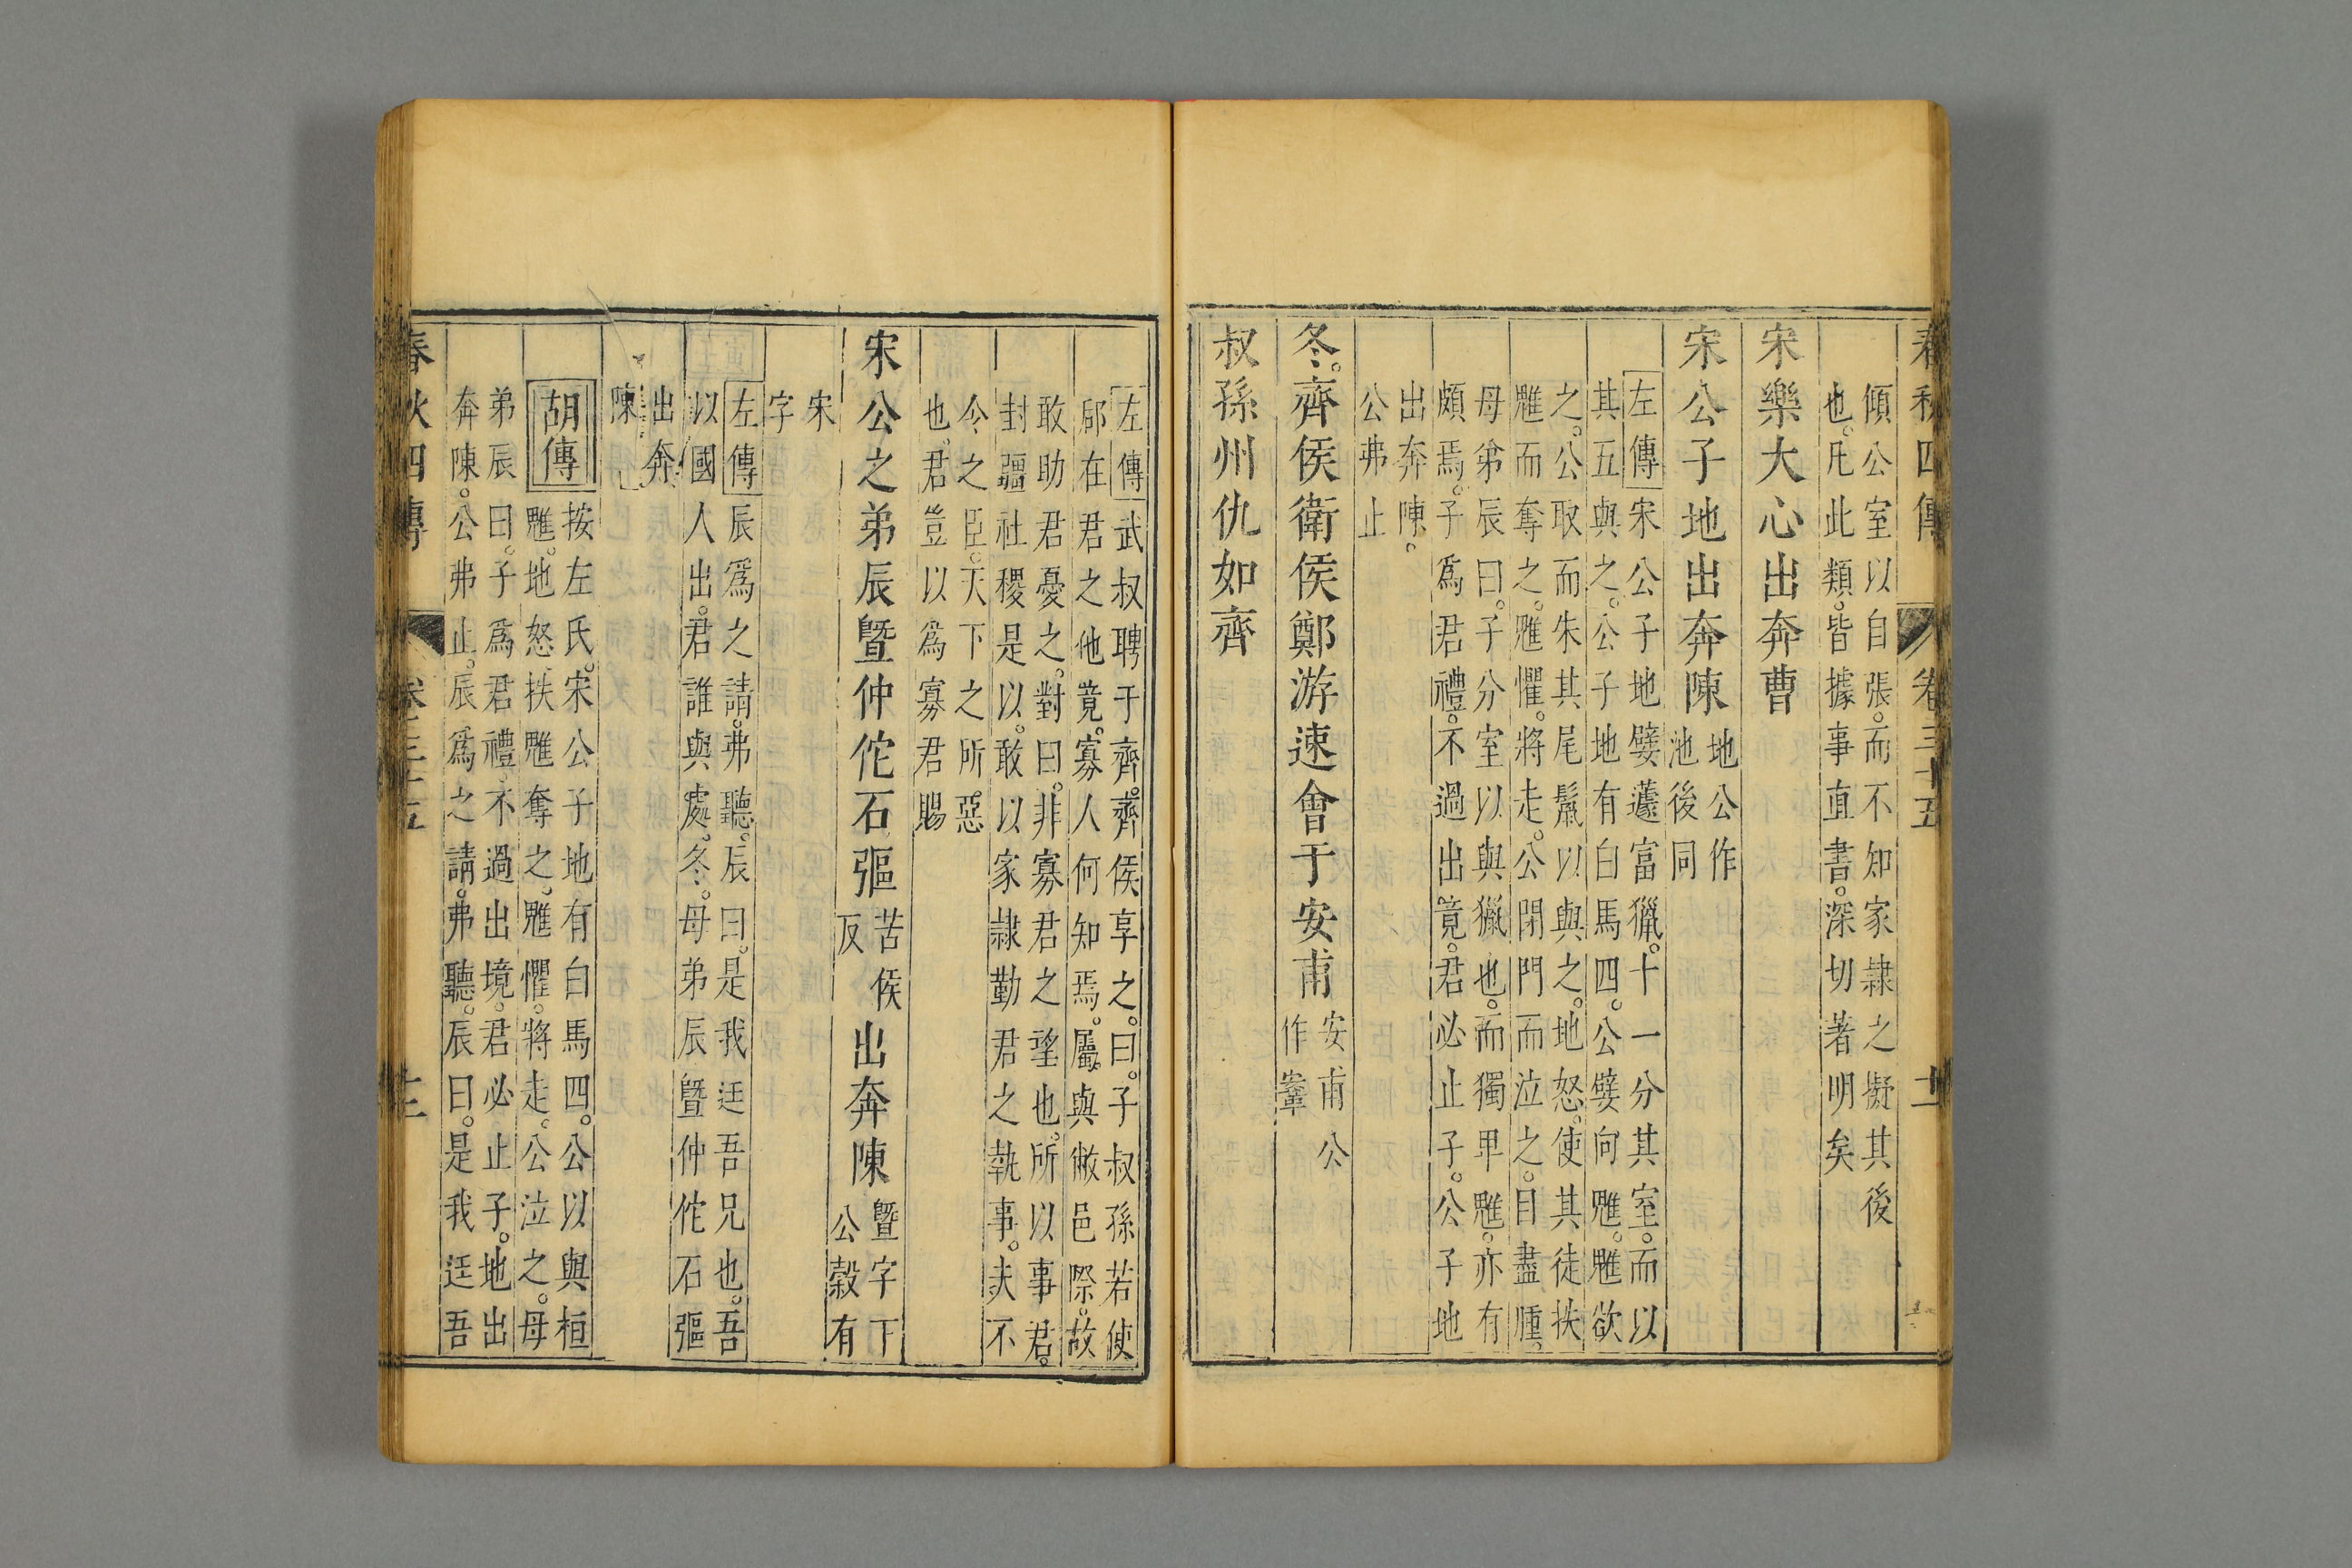 春秋四傳 卷三十五
傾公室以自張。而不知家隷之擬其後
也。凡此類。皆據事直書。深切著明矣
宋樂大心出奔曹
宋公子地出奔陳
地公作
池後同
左傳宋公子地嬖蘧富獵。十一分其室。而以
其五與之。公子地有白馬四。公嬖向魋。魋欲
之。公取而朱其尾鬣以與之。地怒。使其徒抶
魋而奪之。魋懼。將走。公閉門而泣之。目盡腫。
母弟辰曰。子分室以與獵也。而獨卑魋。亦有
頗焉。子爲君禮。不過出竟。君必止子。公子地
出奔陳。
公弗止
冬。齊侯衛侯鄭游速會于安甫
安甫公
作鞌
叔孫州仇如齊
左傳武叔聘于齊。齊侯享之。曰。子叔孫若使
郈在君之他竟。寡人何知焉。屬與敝邑際。故
敢助君憂之。對曰。非寡君之望也。所以事君。
封疆社稷是以。敢以家隷勤君之執事。夫不
令之臣。天下之所惡
也。君豈以爲寡君賜
宋公之弟辰暨仲佗石彄
苦侯
反
出奔陳
暨字下
公穀有
宋
字
左傳辰爲之請。弗聽。辰曰。是我迋吾兄也。吾
以國人出。君誰與處。冬。母弟辰暨仲佗石彄
出奔
陳
胡傳
按左氏。宋公子地有白馬四。公以與桓
魋。地怒抶魋奪之。魋懼。將走。公泣之。母
弟辰曰。子爲君禮。不過出境。君必止子。地出
奔陳。公弗止。辰爲之請。弗聽。辰曰。是我迋吾
春秋四傳 卷三十五